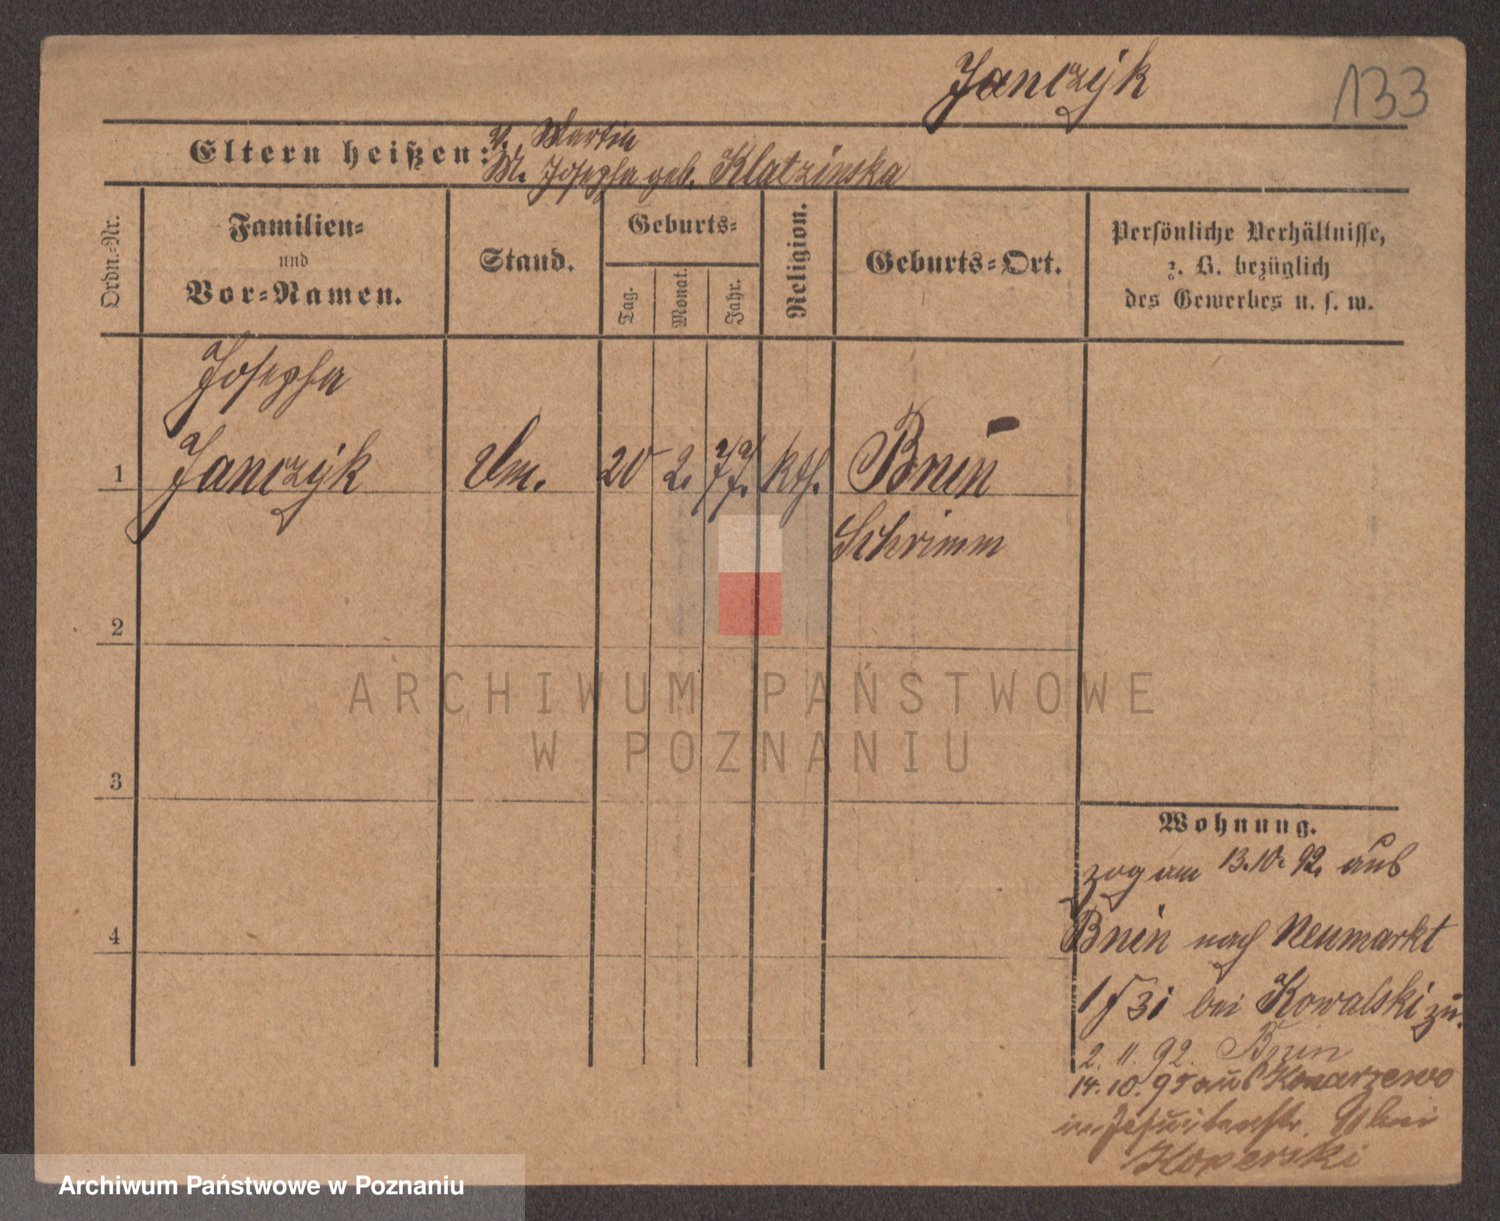 Janczyk
133
Eltern heißen: V. Martin
M. Josepha geb. Klatzinska
Ordn.-Nr.
Familien-
und
Vor-Namen.
Stand.
Geburts-
Tag.
Monat.
Jahr.
Religion.
Geburts-Ort.
Persönliche Verhältnisse,
z. B. bezüglich
des Gewerbes u. s. w.
Josepha
1 Janczyk 20 2. 77. kth. Bnin
Schrimm
2
ARCHIWUM PAŃSTWOWE
W POZNANIU
3
Wohnung.
zog am 13.10.92. aus
4
Bnin nach Neumarkt
bei Kowalski zu.
2. 11. 92. Bnin
14.10.95 aus Konarzewo
in Jesuitenstr. bei
Koperski
Archiwum Państwowe w Poznaniu